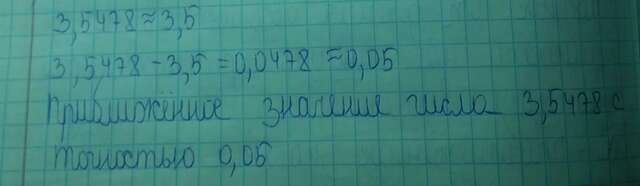 3,5478 ≈ 3,5
3,5478 - 3,5 = 0,0478 ≈ 0,05
Приближённое значение числа 3,5478 с
точностью 0,05